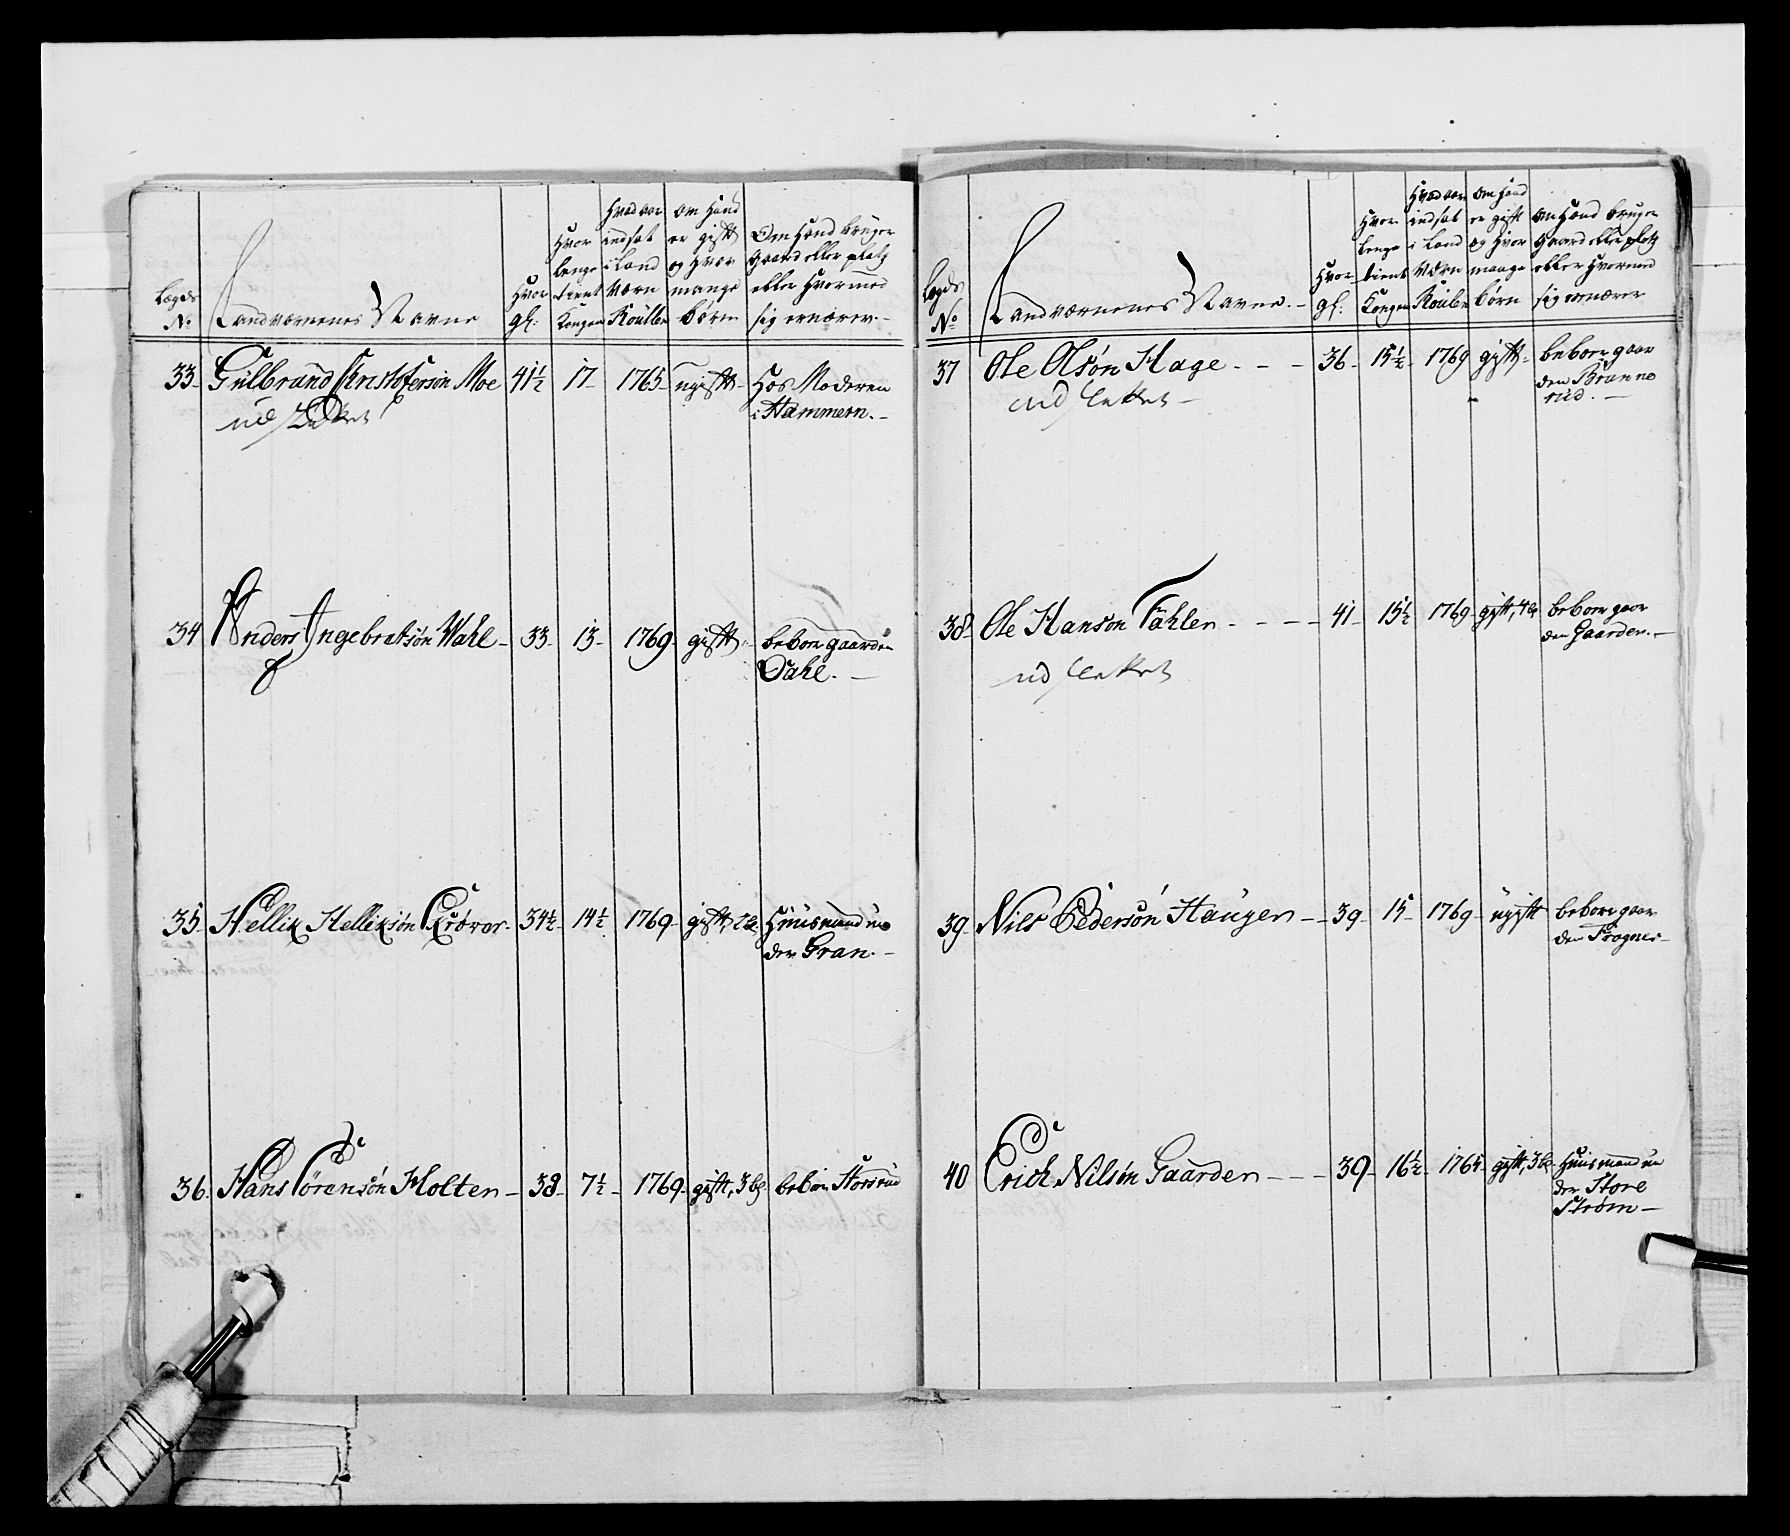 Lægds No
Landværnernes Navne
Hvor gl:
Hvor lenge tient Kongen
Hvad aar indsat i Land Værn Roullen
om Hand er gift og Hvor mange børn
Om Hand bruger Gaard eller platz eller Hvormed sig ernærer.-
33. Gulbrand Kristofersøn Moe 41½ 17- 1765- ugift- Hos Moderen
i Hammern.-
ud
34 Anders Ingebretsøn Wahl- 33- 13- 1769- gift- beboer gaarden
Dahl.-
35- Hellik Helliksøn 34½- 14½ 1769- gift, 2 b. Huusmand un
der Gran.-
36. Hans Sörensøn Holten- 38- 7½- 1769- gift, 3 b. beboer Storsrud
Lægds No
Landværnernes Navne.-
Hvor gl:
Hvor lenge tient Kongen
Hvad aar indsat i Land Værn Roullen
om Hand er gift og Hvor mange børn
om Hand bruger Gaard eller platz eller Hvormed sig ernærer
37 Ole Olsøn Hage.--- 36- 15½- 1769 gift- beboer gaar
den Brunne
rud.-
ud slettet-
38. Ole Hansøn Fahlen---- 41- 15½- 1769- gift, 4 b. beboer gaar
den Gaarden.-
ud slettet
39- Nils Pedersøn Haugen-- 39- 15- 1769- ugift beboer gaar
den Frogner-
40 Erich Nilsøn Gaarden--- 39- 16½- gift, 3 b. Huusmand un
der Store
Strøm-